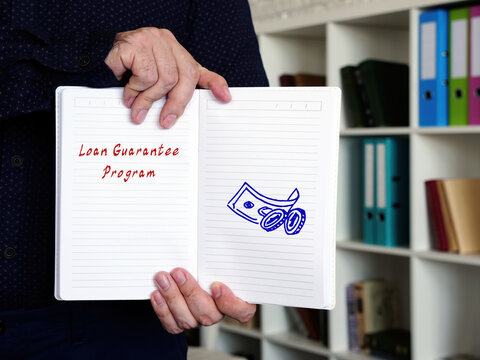 Loan Guarantee
Program